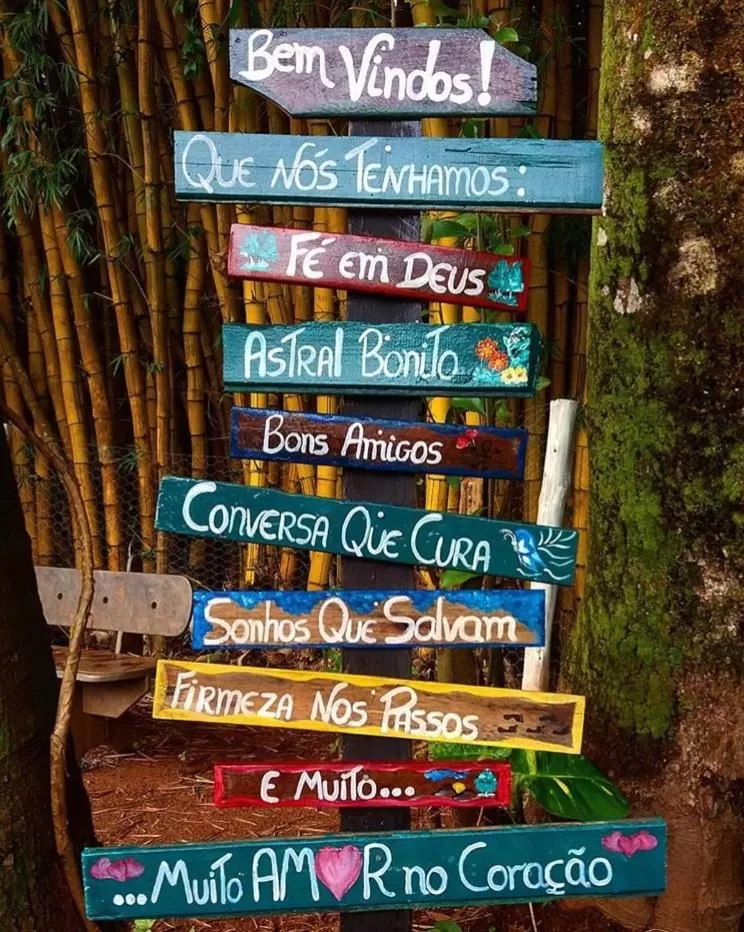 Bem Vindos!
QUE NÓS TENHAMOS:
FÉ EM DEUS
ASTRAL BONITO
BONS AMIGOS
CONVERSA QUE CURA
Sonhos Que Salvam
FIRMEZA NOS PASSOS
E MUITO...
...MUITO AMOR no Coração